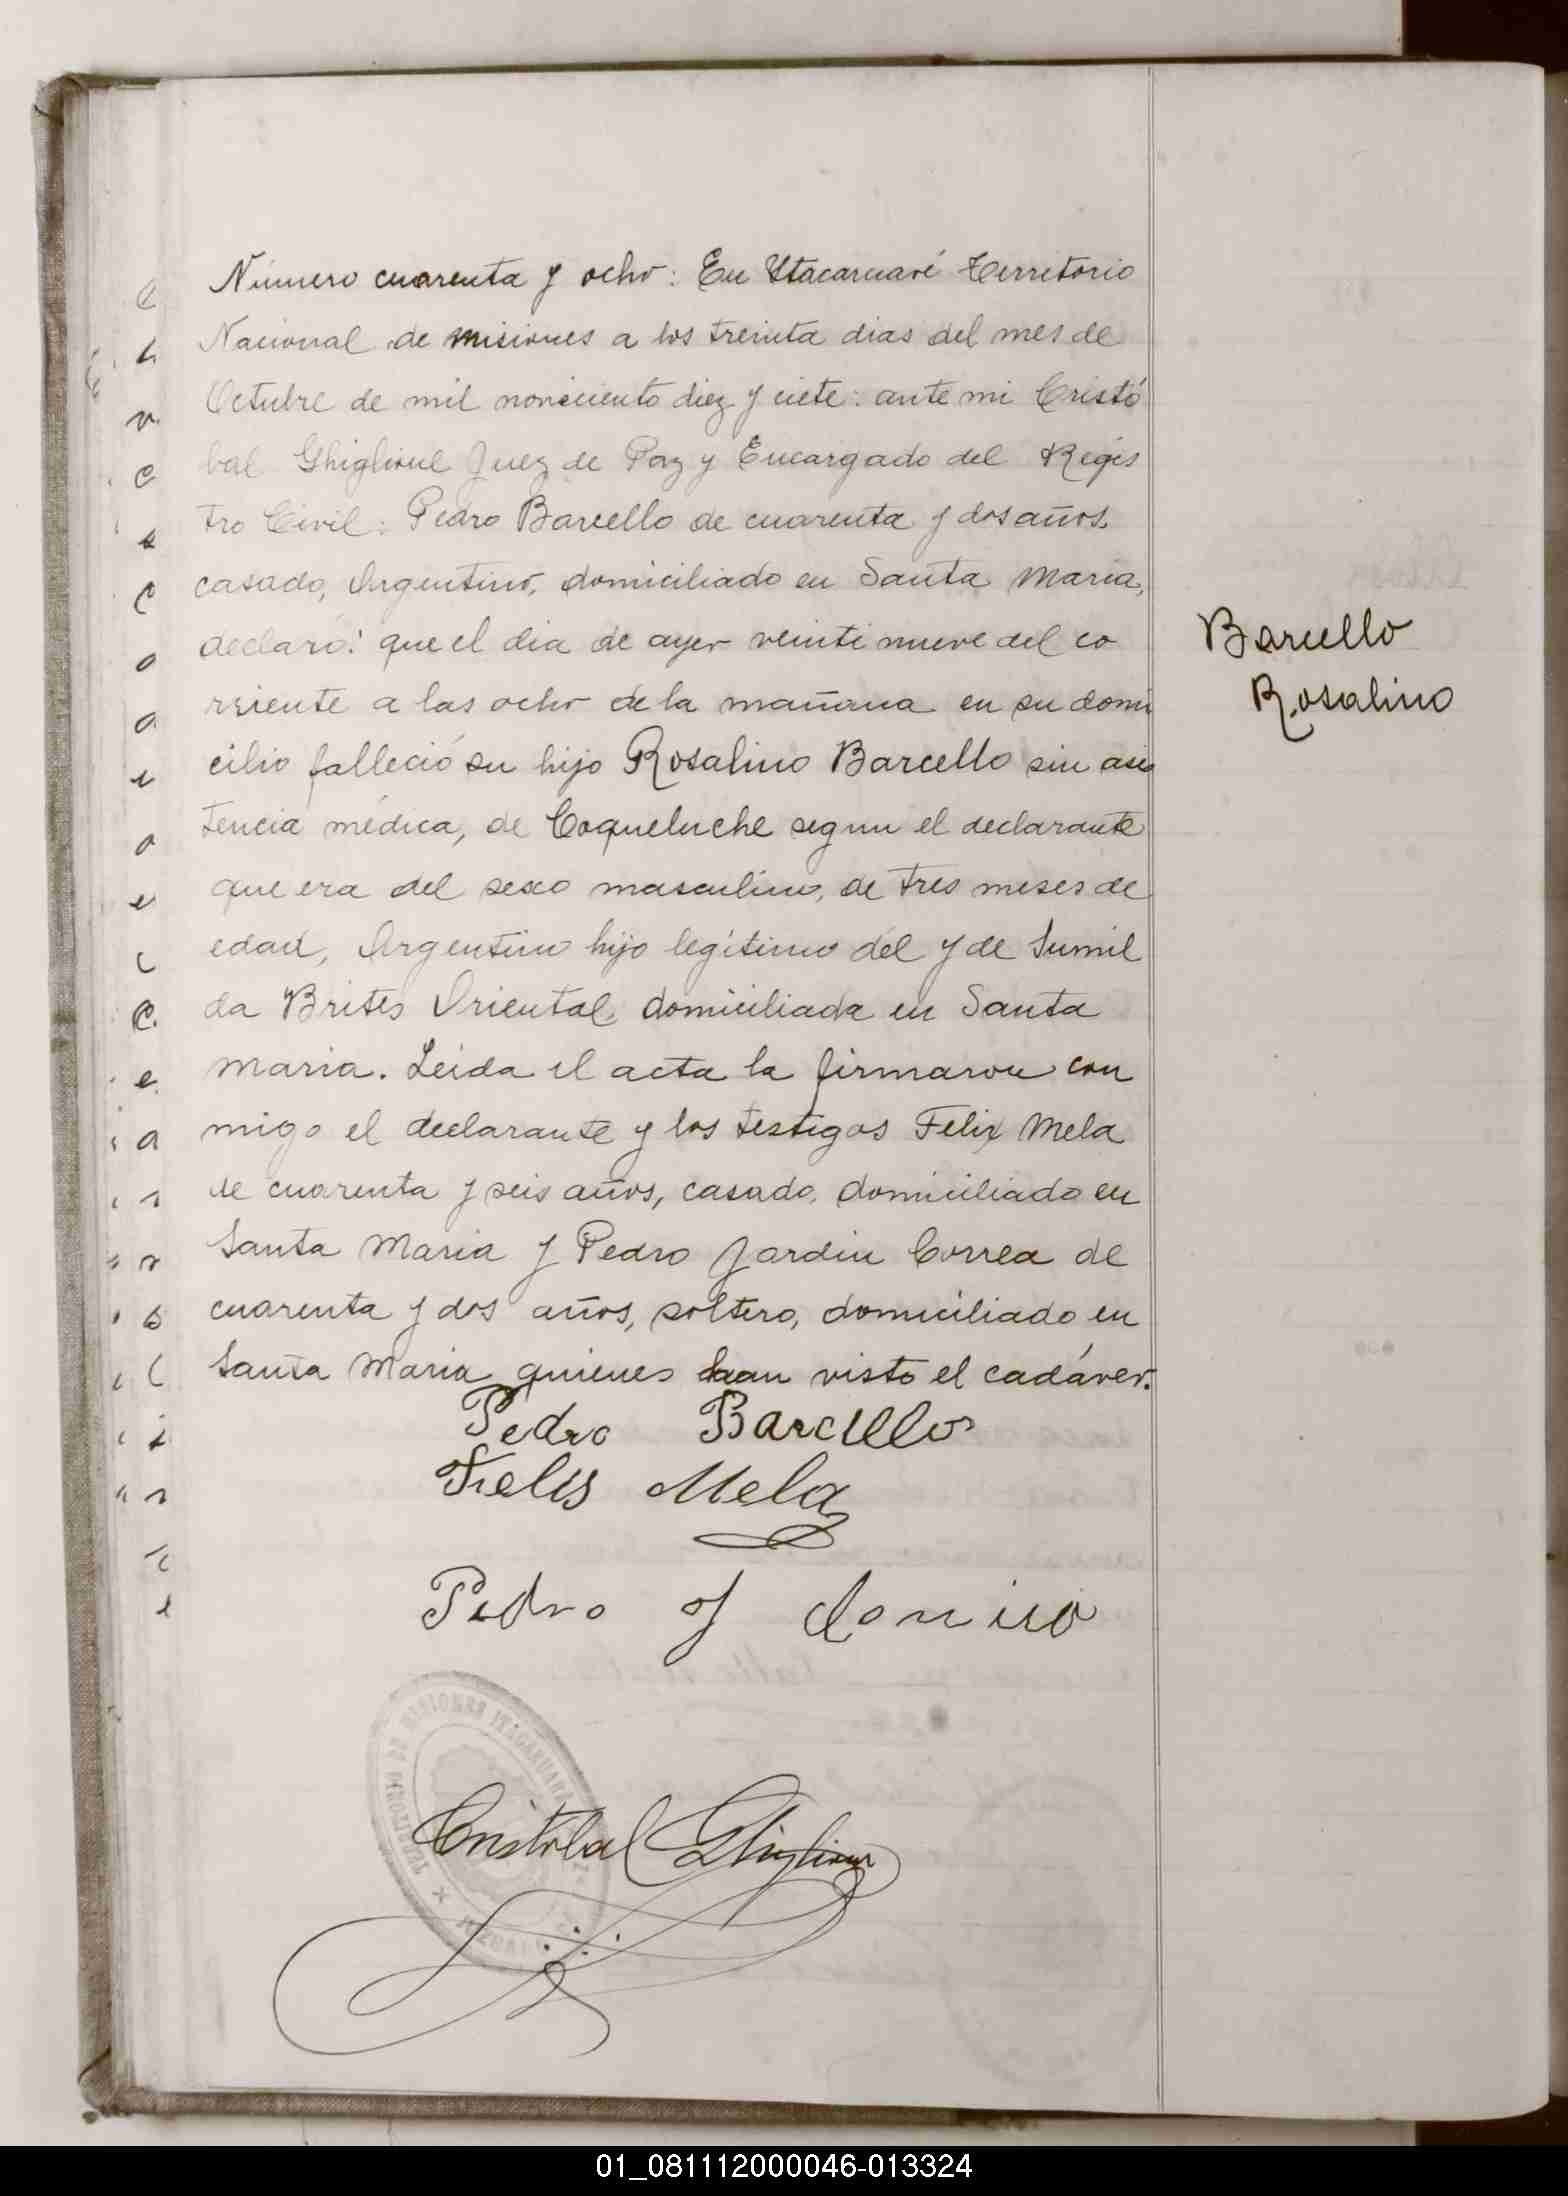 Número cuarenta y ocho: En Itacaruaré Territorio
Nacional de misiones a los treinta dias del mes de
Octubre de mil noveciento diez y siete: ante mi Cristó
bal Ghiglione Juez de Paz y Encargado del Regis
tro Civil: Pedro Barcello de cuarenta y dos años,
casado, Argentino, domiciliado en Santa Maria,
declaró: que el dia de ayer veintinueve del co
rriente a las ocho de la mañana en su domi
cilio falleció su hijo Rosalino Barcello sin asis
tencia médica, de Coqueluche segun el declarante
que era del sexo masculino, de tres meses de
edad, Argentino hijo legítimo del y de Sumil
da Brites Oriental, domiciliada en Santa
Maria. Leida el acta la firmaron con
migo el declarante y los testigos Felix Mela
de cuarenta y seis años, casado, domiciliado en
Santa Maria y Pedro Jardin Correa de
cuarenta y dos años, soltero, domiciliado en
Santa Maria quienes han visto el cadáver.
Barcello
Rosalino
Pedro Barcello
Felis Mela
Pedro J
TERRITORIO DE MISIONES ITACARUARÉ
Cristobal Ghiglione
01_081112000046-013324